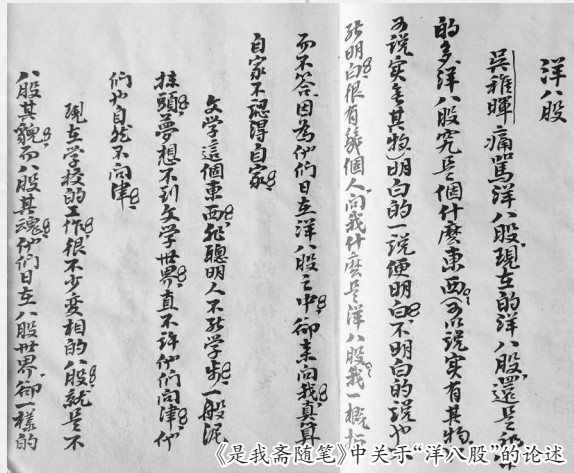 洋八股
吳稚暉痛罵洋八股現在的洋八股還是
的多洋八股究是個什麼東西(可以說實有其物
可說實無其物)明白的一說便明白不明白的說也不
能明白很有幾個人向我什麼是洋八股我一概拒
而不答因為他們日在洋八股之中卻來問我真算
自家不認得自家
文学這個東西非聰明人不能学步一般泥
抹頭夢想不到文学世界真不許他們問津他
們也自然不问津
現在学校的工作很不少变相的八股就是不
八股其貌而八股其魂他們日在八股世界卻一樣的
《是我斋随笔》中关示“洋八股”的论述